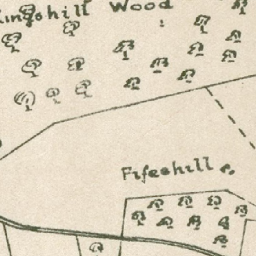 Kingshill Wood
Fifeshill